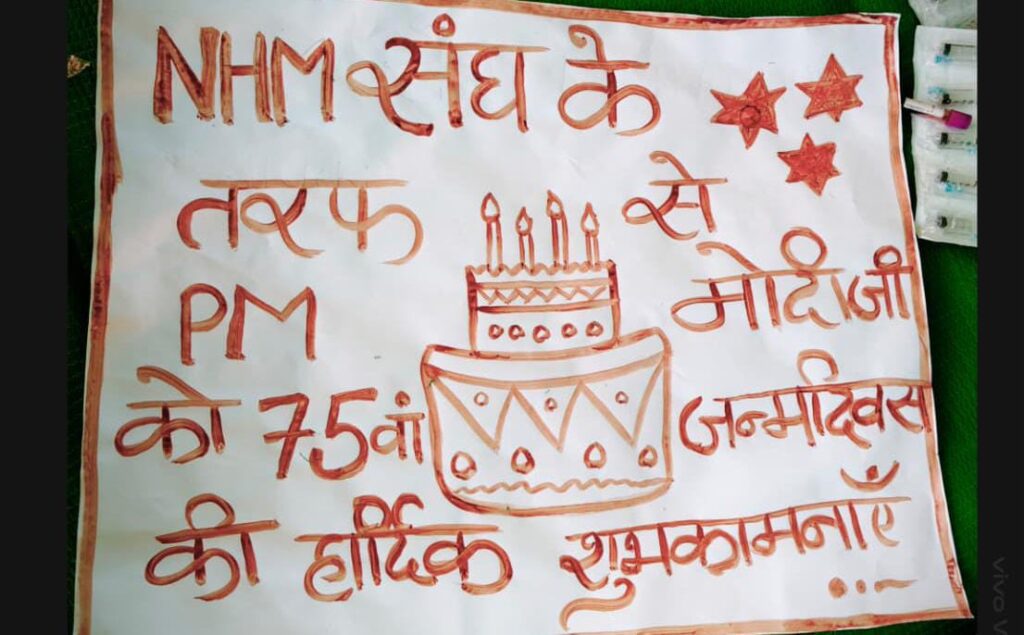 NHM संघ के
तरफ से
PM मोदीजी
को 75वां जन्मदिवस
की हार्दिक शुभकामनाएँ ...
vivo